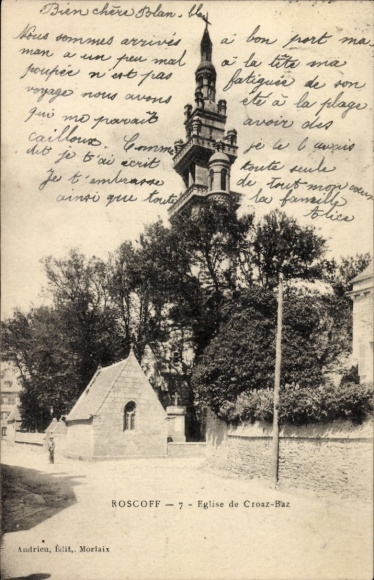 Bien chère
Nous sommes arrivés à bon port ma
man a un peu mal à la tête ma
poupée n'est pas fatiguée de son
voyage nous avons été à la plage
qui me paraît avoir des
cailloux. Comme je te l'avais
dit je t'ai écrit toute seule
Je t'embrasse de tout mon cœur
ainsi que toute la famille
ROSCOFF — 7 - Eglise de Croaz-Baz
Andrieu, Édit., Morlaix